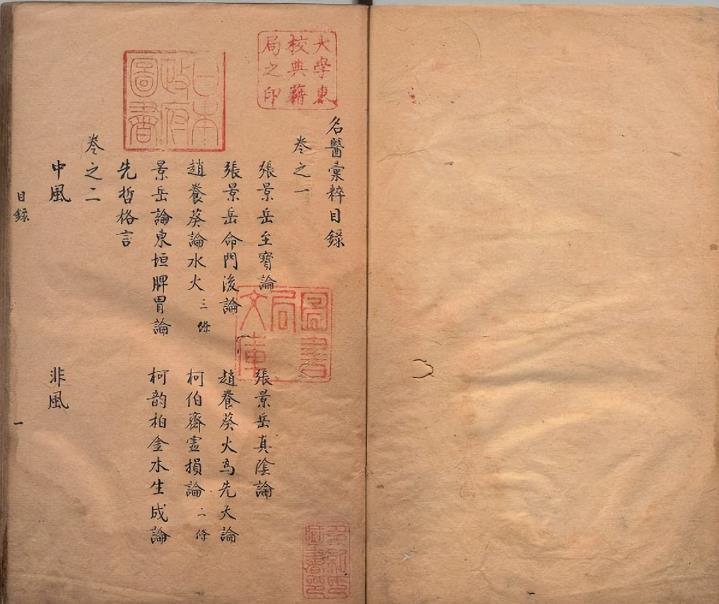 大學東
校典籍
局之印
日本
政府
圖書
名醫彙粹目錄
卷之一
張景岳至寶論 張景岳真陰論
張景岳命門後論 趙養葵火為先天論
趙養葵論水火三條 柯伯齋虛損論二條
景岳論東垣脾胃論 柯韵柏金水生成論
先哲格言
卷之二
中風 非風
目錄 一
圖書
局
文庫